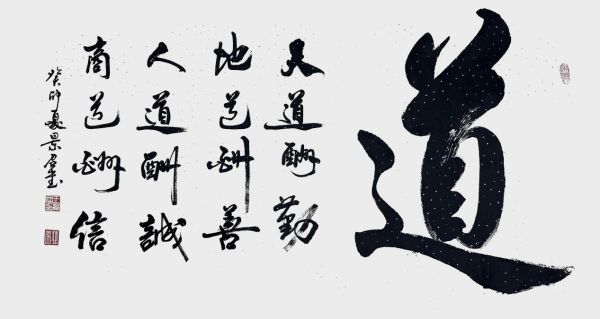 道
天道酬勤
地道酬善
人道酬誠
商道酬信
癸卯夏景